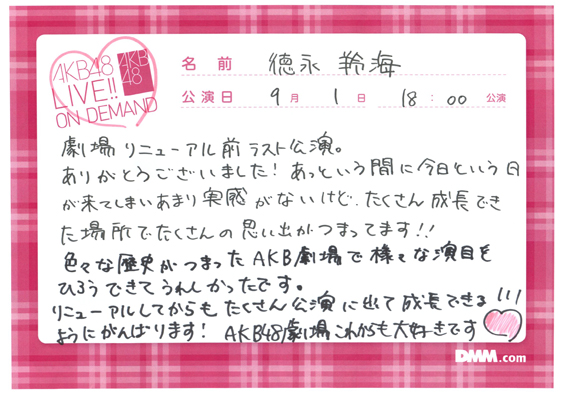 AKB48
LIVE!!
ON DEMAND
AKB
48
名前 徳永 羚海
公演日 9月 1日 18:00 公演
劇場リニューアル前ラスト公演。
ありがとうございました！あっという間に今日という日
が来てしまいあまり実感がないけど、たくさん成長でき
た場所でたくさんの思い出がつまってます！！
色々な歴史がつまったAKB劇場で様々な演目を
ひろうできてうれしかったです。
リニューアルしてからもたくさん公演に出て成長できる
ようにがんばります！ AKB48劇場これからも大好きです!!!
DMM.com